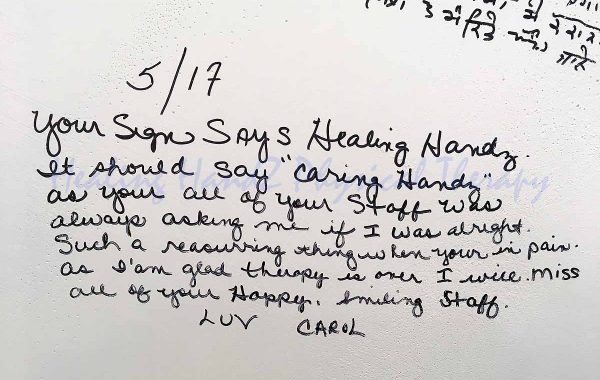 5/17
Your Sign Says Healing Handz.
It should say "Caring Handz"
as your all of your Staff was
always asking me if I was alright.
Such a reasurring thing when your in pain.
as I'am glad therapy is over I will miss
all of your Happy. Smiling Staff.
LUV CAROL
Healing Handz Physical Therapy